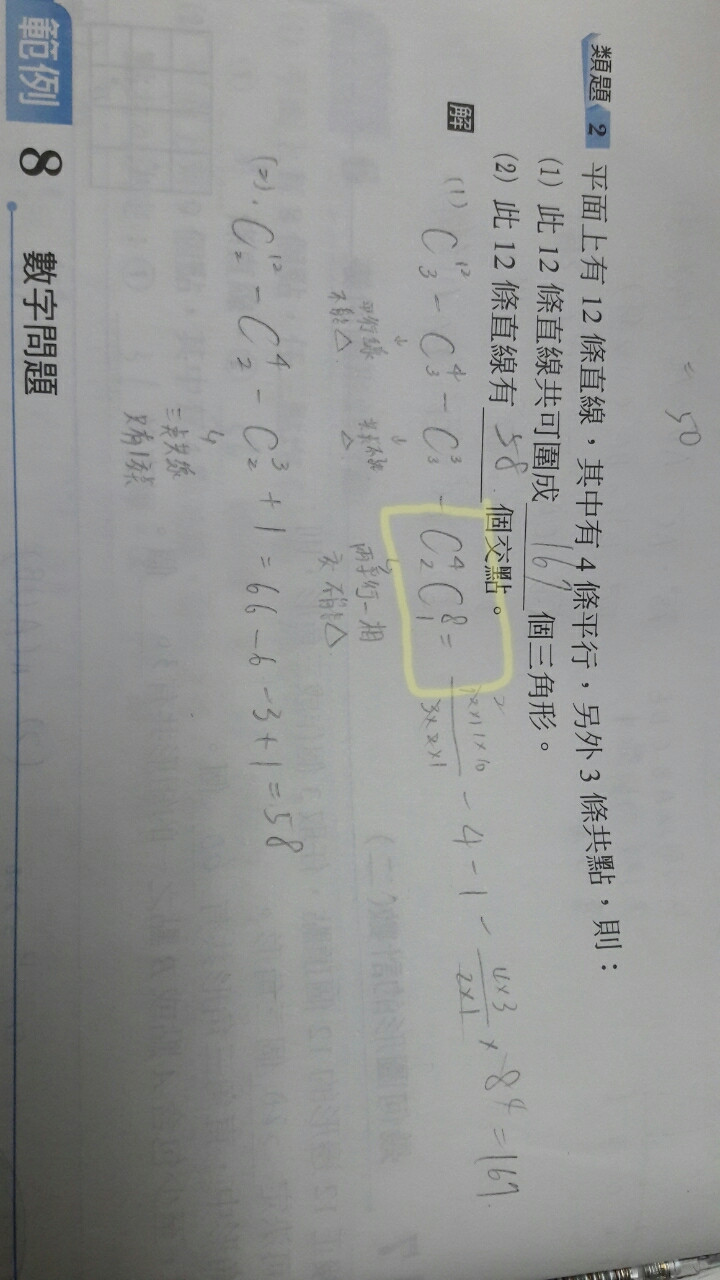 = 50
類題 2 平面上有 12 條直線，其中有 4 條平行，另外 3 條共點，則：
(1) 此 12 條直線共可圍成 167 個三角形。
(2) 此 12 條直線有 58 個交點。
解
(1) C¹²₃ - C⁴₃ - C³₃ - C⁴₂C⁸₁ = 12×11×10 / 3×2×1 - 4 - 1 - 4×3 / 2×1 × 8 = 167
平行線 不能△
共点不能 △
兩平行一相交 不能△
(2) C¹²₂ - C⁴₂ - C³₂ + 1 = 66 - 6 - 3 + 1 = 58
三点共線
只有1交点
範例 8 數字問題